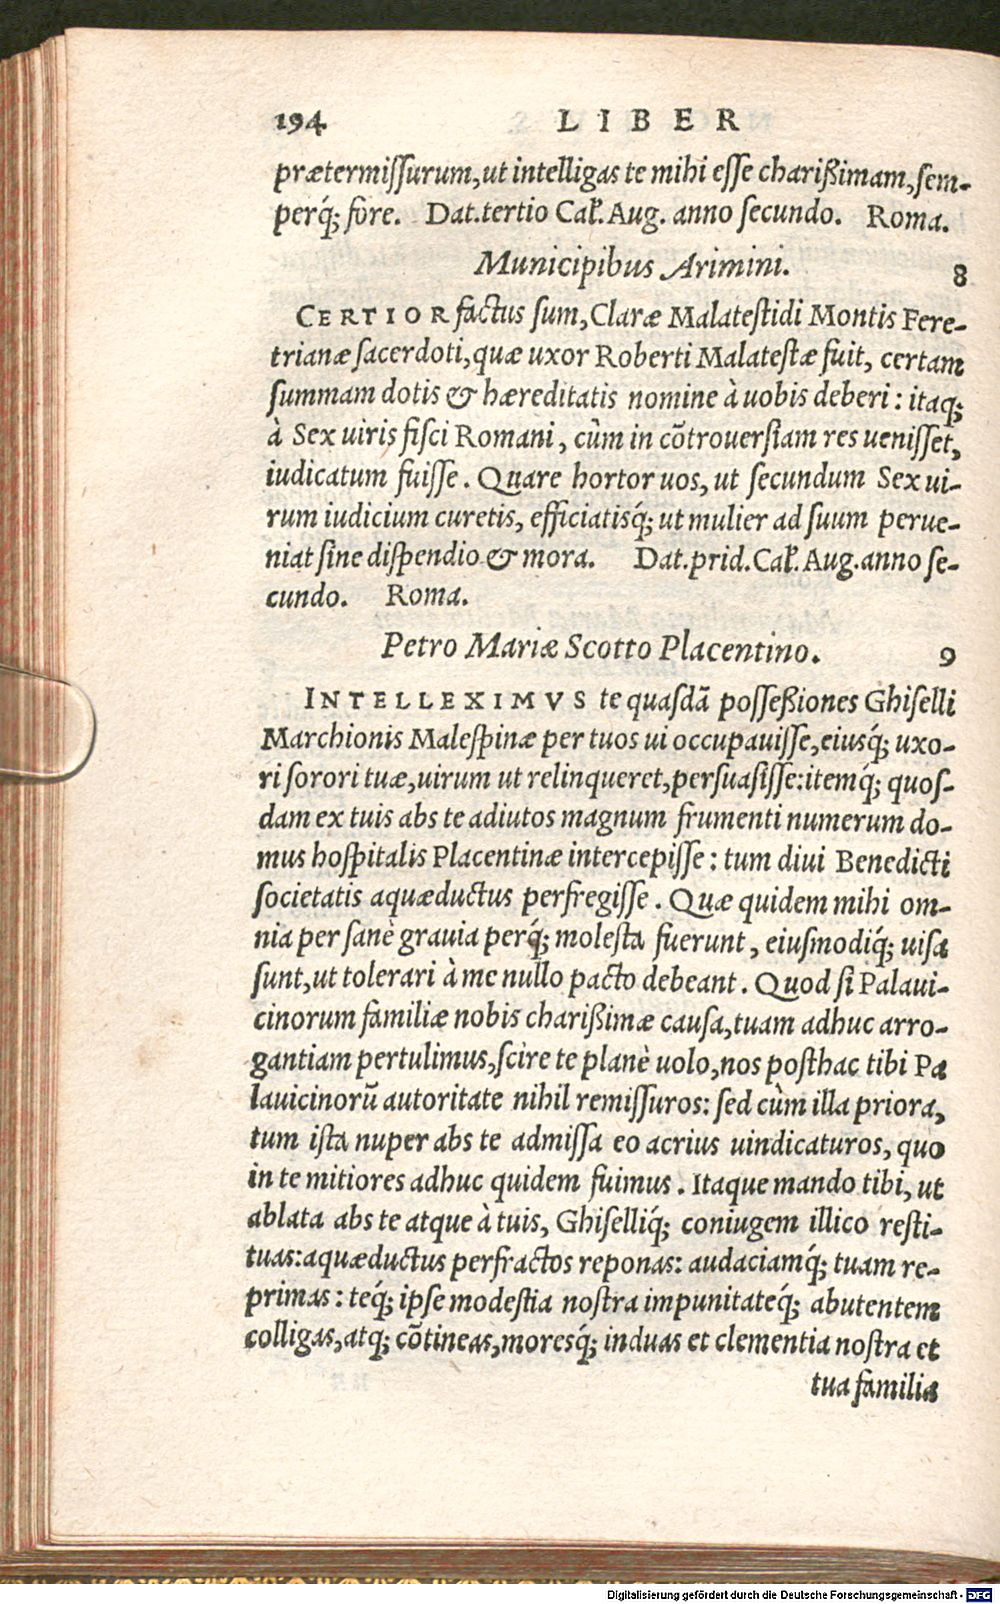 194 LIBER
prætermissurum, ut intelligas te mihi esse charißimam, sem-
perq́; fore. Dat. tertio Cal. Aug. anno secundo. Roma.
Municipibus Arimini. 8
CERTIOR factus sum, Claræ Malatestidi Montis Fere-
trianæ sacerdoti, quæ uxor Roberti Malatestæ fuit, certam
summam dotis & hæreditatis nomine à uobis deberi: itaq;
à Sex uiris fisci Romani, cùm in cõtrouersiam res uenisset,
iudicatum fuisse. Quare hortor uos, ut secundum Sex ui-
rum iudicium curetis, efficiatisq́; ut mulier ad suum perue-
niat sine dispendio & mora. Dat. prid. Cal. Aug. anno se-
cundo. Roma.
Petro Mariæ Scotto Placentino. 9
INTELLEXIMVS te quasdã posseßiones Ghiselli
Marchionis Malespinæ per tuos ui occupauisse, eiusq́; uxo-
ri sorori tuæ, uirum ut relinqueret, persuasisse: itemq́; quos-
dam ex tuis abs te adiutos magnum frumenti numerum do-
mus hospitalis Placentinæ intercepisse: tum diui Benedicti
societatis aquæductus perfregisse. Quæ quidem mihi om-
nia per sanè grauia perq́; molesta fuerunt, eiusmodiq́; uisa
sunt, ut tolerari à me nullo pacto debeant. Quod si Palaui-
cinorum familiæ nobis charißimæ causa, tuam adhuc arro-
gantiam pertulimus, scire te planè uolo, nos posthac tibi Pa
lauicinorũ autoritate nihil remissuros: sed cùm illa priora,
tum ista nuper abs te admissa eo acrius uindicaturos, quo
in te mitiores adhuc quidem fuimus. Itaque mando tibi, ut
ablata abs te atque à tuis, Ghiselliq́; coniugem illico resti-
tuas: aquæductus perfractos reponas: audaciamq́; tuam re-
primas: teq́; ipse modestia nostra impunitateq́; abutentem
colligas, atq; cõtineas, moresq́; induas et clementia nostra et
tua familia
Digitalisierung gefördert durch die Deutsche Forschungsgemeinschaft - DFG